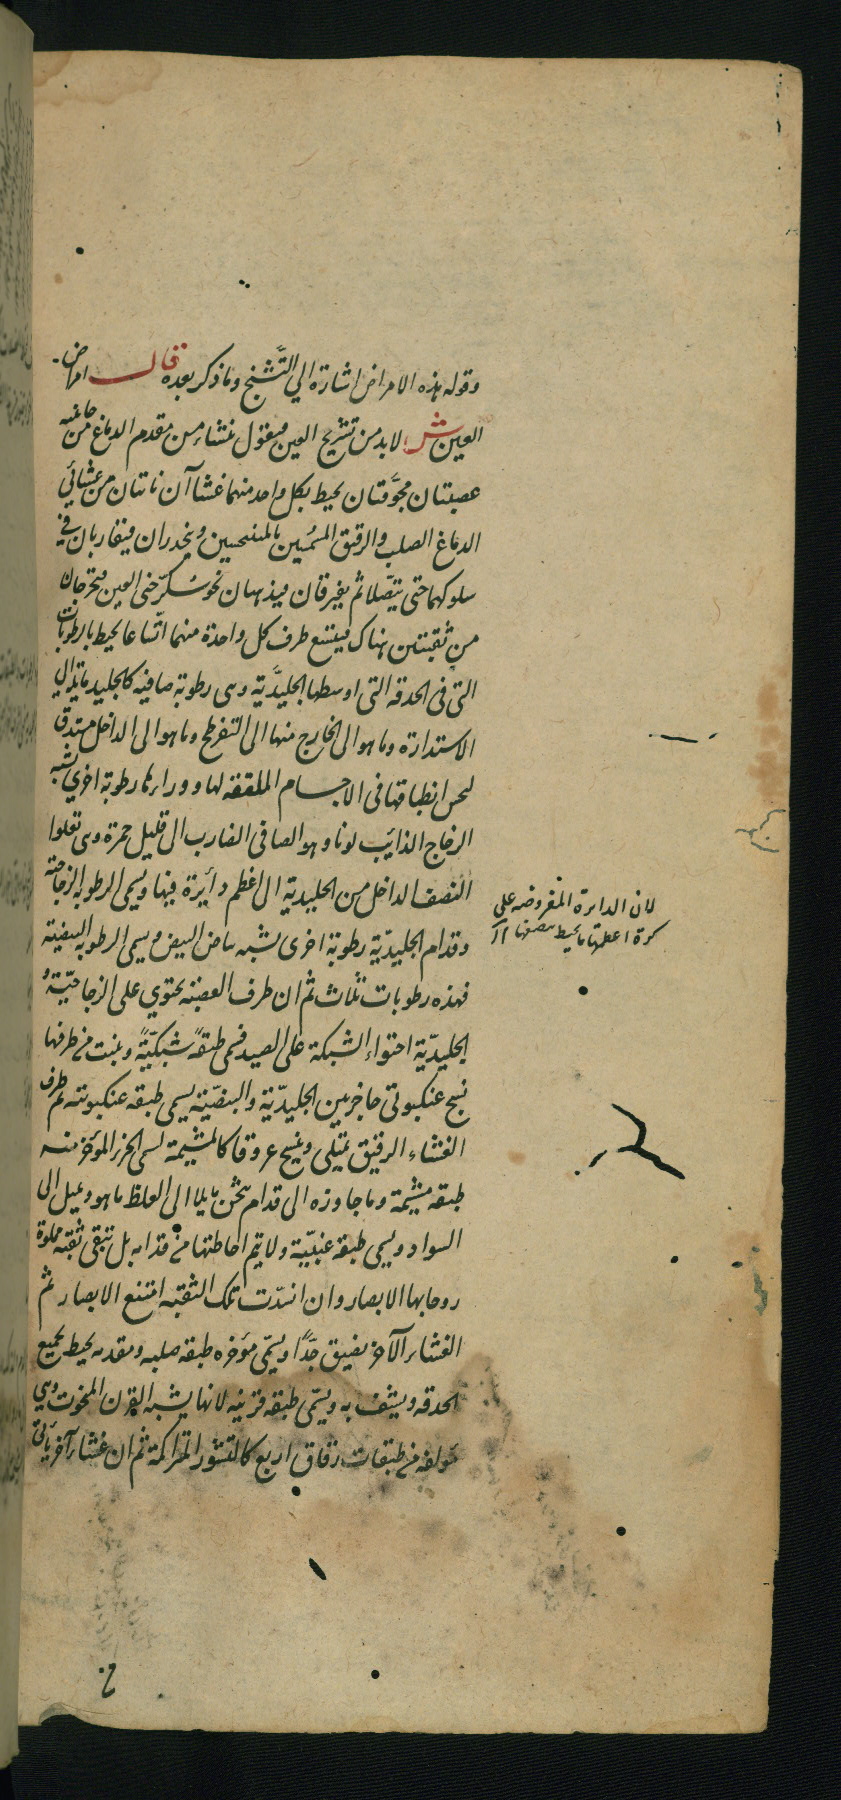 وقوله هذه الامراض اشارة الي التَّشنج وما ذكر بعده قال امراض
العين ش لابد من تشريح العين فيقول ينشاء من مقدم الدماغ من جانبيه
عصبتان مجوَّفتان يحيط بكل واحد منهما غشاآن ناتتان من غشائي
الدماغ الصلب والرقيق المسمّيين بالمننحيين وينحدران فيتقاربان في
سلوكهما حتى يتّصلا ثم يفترقان فيذهبان نحو العين فتخرجان
من ثقبتين هناك فيتسع طرف كل واحدة منهما اتّساعا يحيط بالرطوبات
التى فى الحدقه التى اوسطها الجليديَّة وهى رطوبة صافيه كالجليد مايلة الي
الاستدارة وما هو الى الخارج منها الى التفرطح وما هو الى الداخل مستدق
لحسن انطباقها فى الاجسام الملتقمة لها و وراءها رطوبة اخري تشبه
الزجاج الذايب لونا وهو الصافى الضارب الى قليل حمرة وهى تعلوا
النصف الداخل من الجليدية الى اعظم دائرة فيها ويسمى الرطوبة الزجاجية
وقدام الجليديّة رطوبة اخرى تشبه بياض البيض ويسمى الرطوبه البيضيّة
فهذه رطوبات ثلاث ثم ان طرف العصبة يحتوي على الزجاجيّة و
الجليديّة احتواء الشبكة على الصيد فسمى طبقةً شبكيّةً وينبت من طرفها
نسج عنكبوتى حاجز بين الجليديّة والبيضيّة يسمى طبقه عنكبوتيه ثم طرف
الغشاء الرقيق يمتلى وينسج عروقا كالمشيمة يسمى الجزء المؤخر منه
طبقه مشيمة وما جاوزه الى قدام يثخن مايلا الى الغلظ ما هو ويميل الى
السواد ويسمى طبقه عنبيّة ولا يتم احاطتها من قدام بل تبقى ثقبه مملوة
روحا بها الابصار وان انسدّت تلك الثقبه امتنع الابصار ثم
الغشاء الآخر يضيق جدًّا ويسمّى مؤخره طبقه صلبه ومقدمه يحيط بجميع
الحدقه ويشف به ويسمّى طبقه قرنيه لانها يشبه القرن المنحوت وهي
مؤلفه من طبقات رقاق اربع كالقشور المتراكمة ثم ان غشاء آخر يأتى
لان الدايرة المفروضه على
كرة اعظمها ما يحيط بنصفها